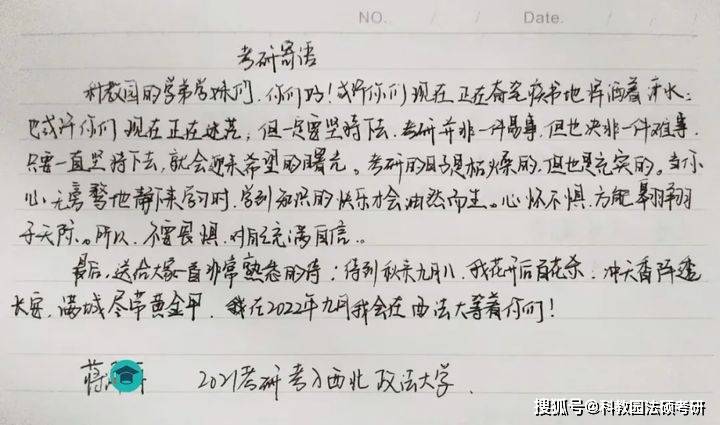 NO. / / Date. / /
考研寄语
科教园的学弟学妹们，你们好！或许你们现在正在奋笔疾书地挥洒着汗水；
也或许你们现在正在迷茫，但一定要坚持下去，考研并非一件易事，但也决非一件难事，
只要一直坚持下去，就会迎来希望的曙光。考研的日子是枯燥的，但也是充实的。当你
心无旁骛地静下来学习时，学到知识的快乐才会油然而生。心怀不惧，方能翱翔
于天际。所以，不要畏惧，对自己充满自信。
最后，送给大家一首非常熟悉的诗：待到秋来九月八，我花开后百花杀，冲天香阵透
长安，满城尽带黄金甲。我在2022年九月我会在西法大等着你们！
蒋
2021考研考入西北政法大学.
搜狐号@科教园法硕考研